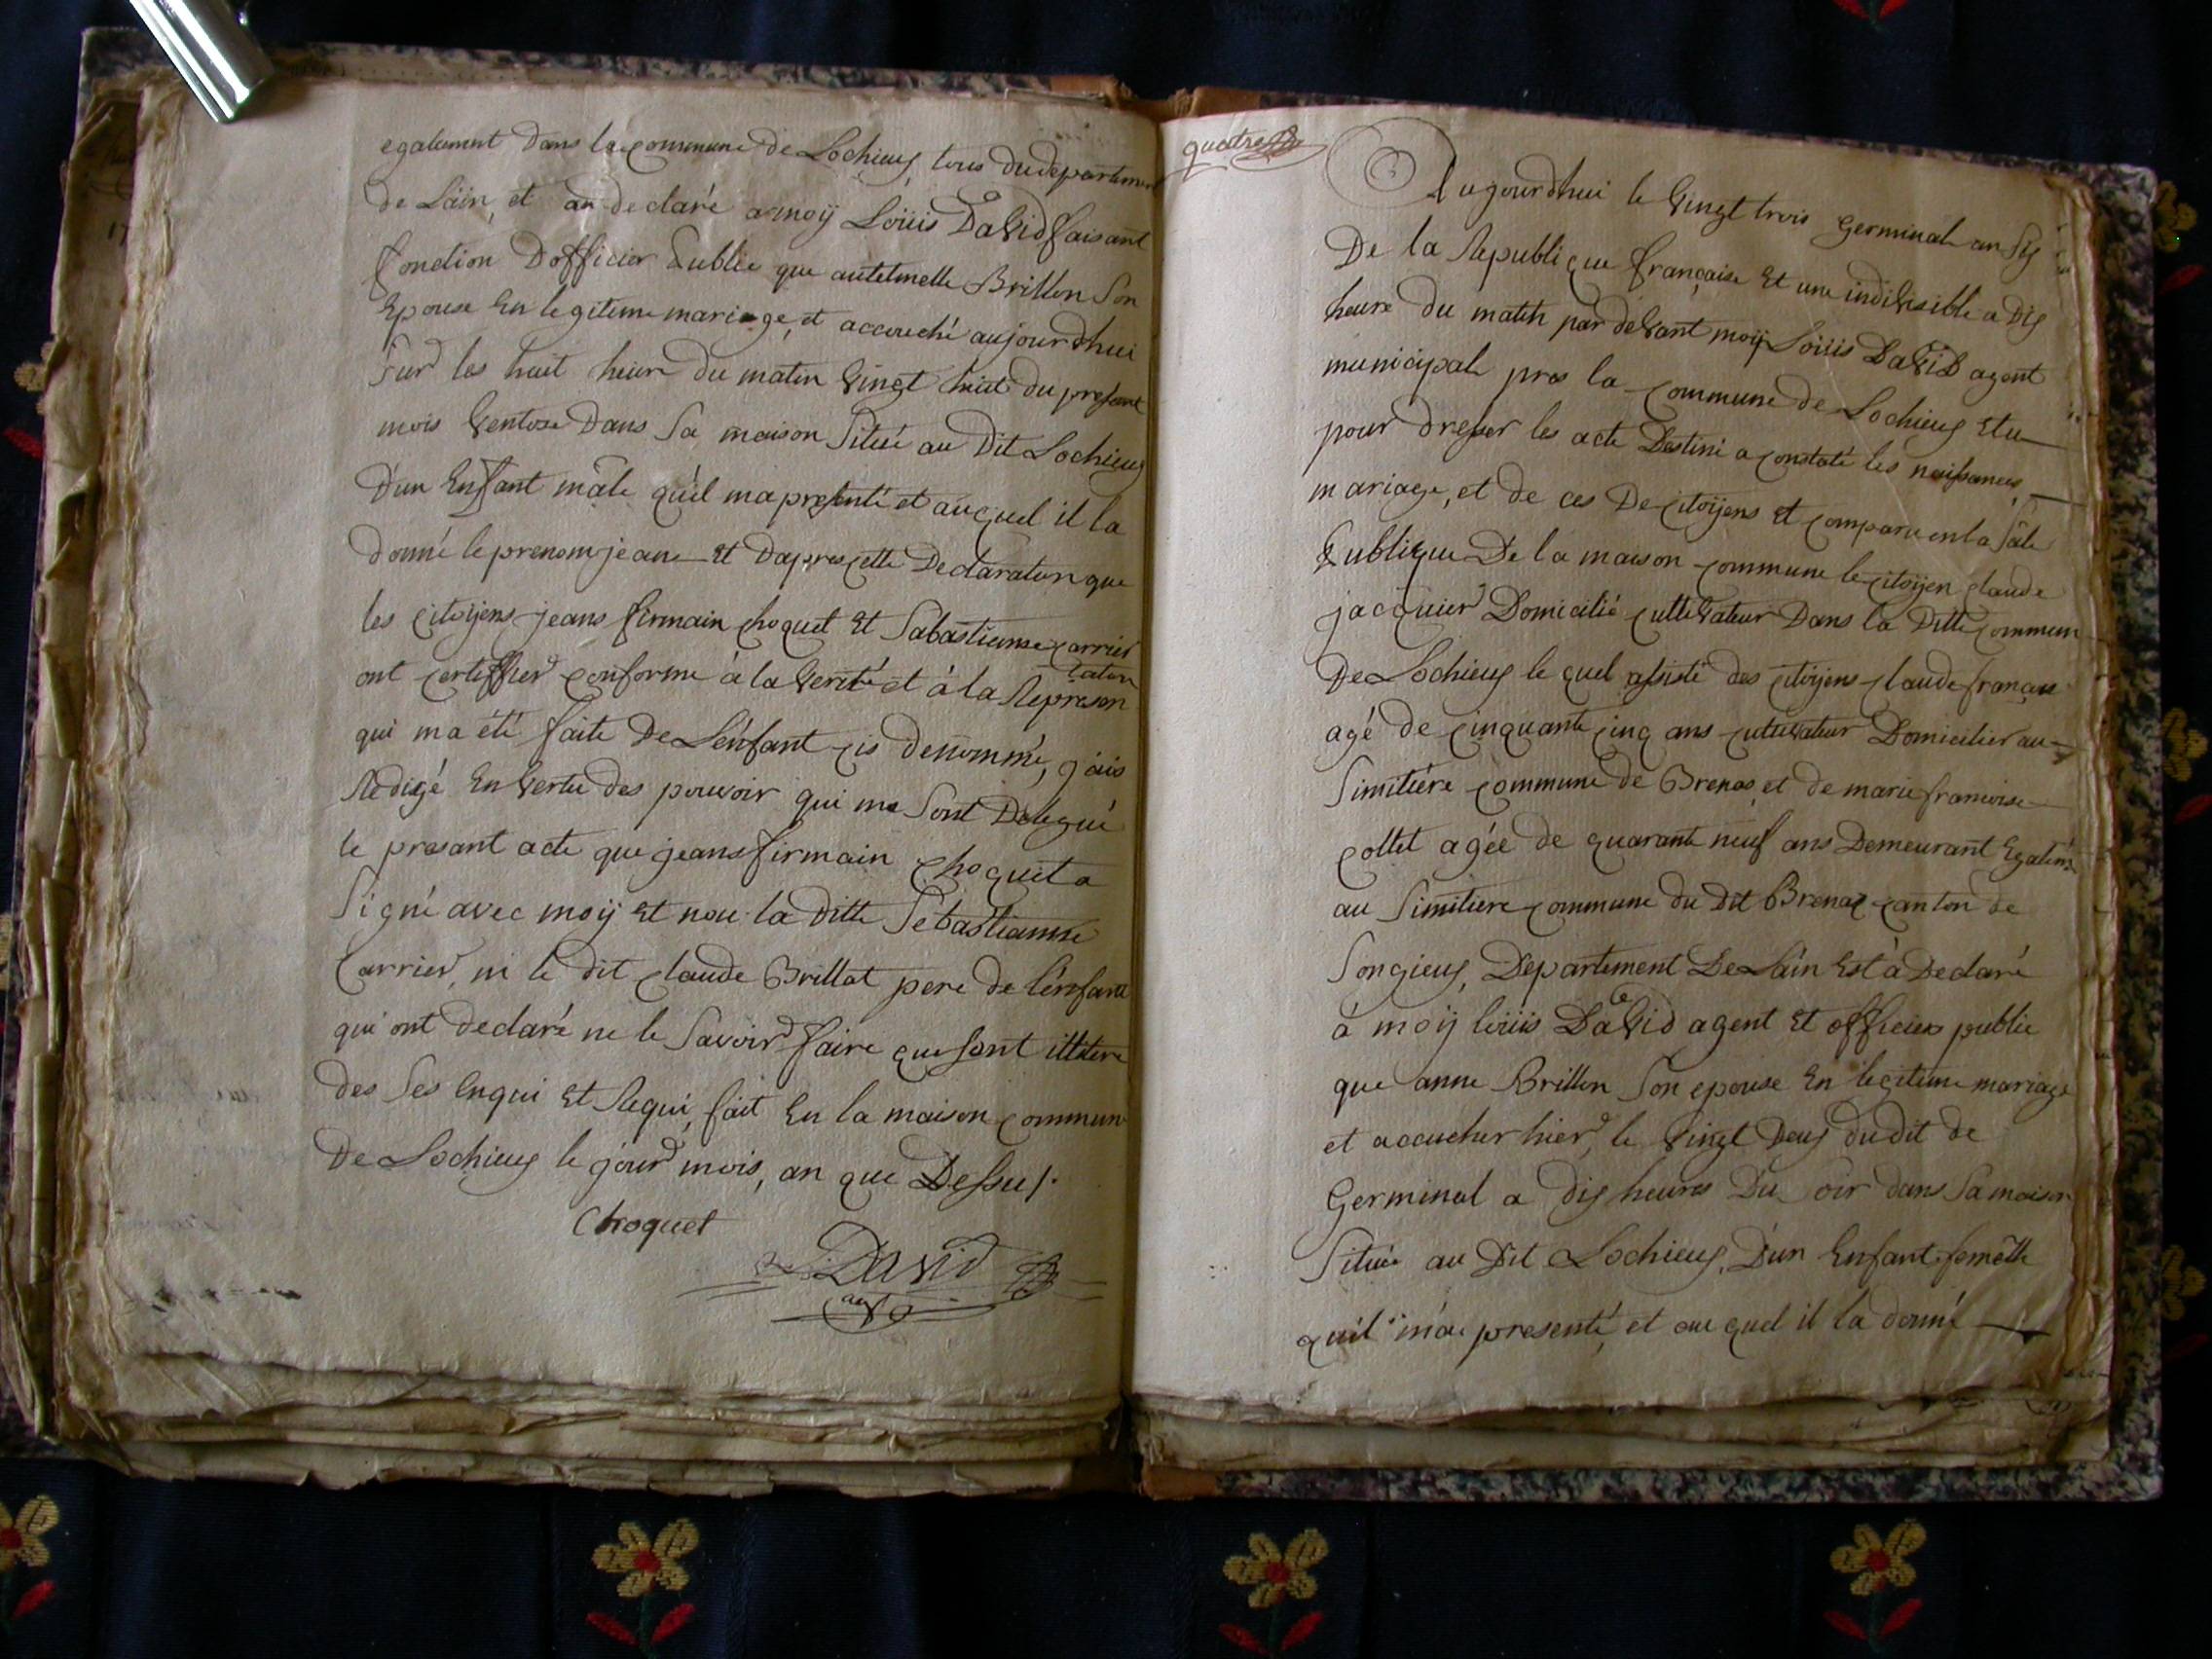 egalement Dans la commune de Lochieux tous du departement
de Lain, et an declaré a moÿ Loüis David faisant
fonction Dofficier Public que Brillon Son
Epouse En legitime mariage, et accouché aujourdhui
Sur les huit heure du matin vingt huit du present
mois Ventose Dans Sa maison Située au Dit Lochieux
D'un Enfant mâle qu'el ma presenté et auquel il la
donné le prenom jean Et Dapres cette Declaration que
les citoÿens jeans firmain choquet Et Sabastienne carrier
ont certiffier conforme à la verité et à la Represen
tation
qui ma été faite De Lénfant cis denommé, j'ais
Redigé En vertu des pouvoir qui me Sont Delegué
le presant acte que jeans firmain choquet a
Signé avec moÿ Et nou la ditte Sebastianne
Carrier, ni le dit claude Brillat pere de lénfant
qui ont declaré ne le Savoir faire que Sont illitere
des Ses enqui Et Requi, fait En la maison commun
De Lochieux le jour mois, an que Dessus.
Choquet
David
agt
quatre
Aujourdhui le vingt trois Germinal an Six
De la Republique française Et une indivisible a Dix
heure du matin par devant moÿ Loüis David agent
municipale pres la commune de Lochieux Elu
pour dresser les acte Destiné a constaté les naissances,
mariage, et de ces De citoÿens Et comparu en la Sale
Publique De la maison commune le citoÿen claude
jacquier Domicilié cultivateur Dans la Ditte commun
De Lochieux le quel assisté des citoÿens claude françois
agé de cinquante cinq ans cultivateur Domicilier au
Simitière commune de Brenas et de marie francoise
collet agée de quarante neuf ans Demeurant Egalem
au Simitiere commune du Dit Brenaz canton de
Songieux, Departement De Lain Est à Declaré
à moÿ loüis David agent Et officier public
que anne Brillon Son epouse En legitime mariage
et accucher hier, le vingt Deux dudit de
Germinal a dix heures Du Soir dans Sa maison
Située au Dit Lochieux, D'un Enfant femelle
quil m'a presenté, et au quel il la donné